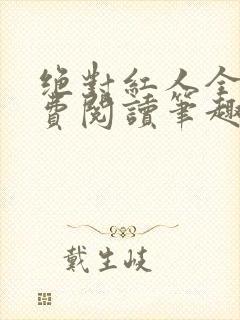 絶對紅人全
費閱讀筆趣
戴生岐